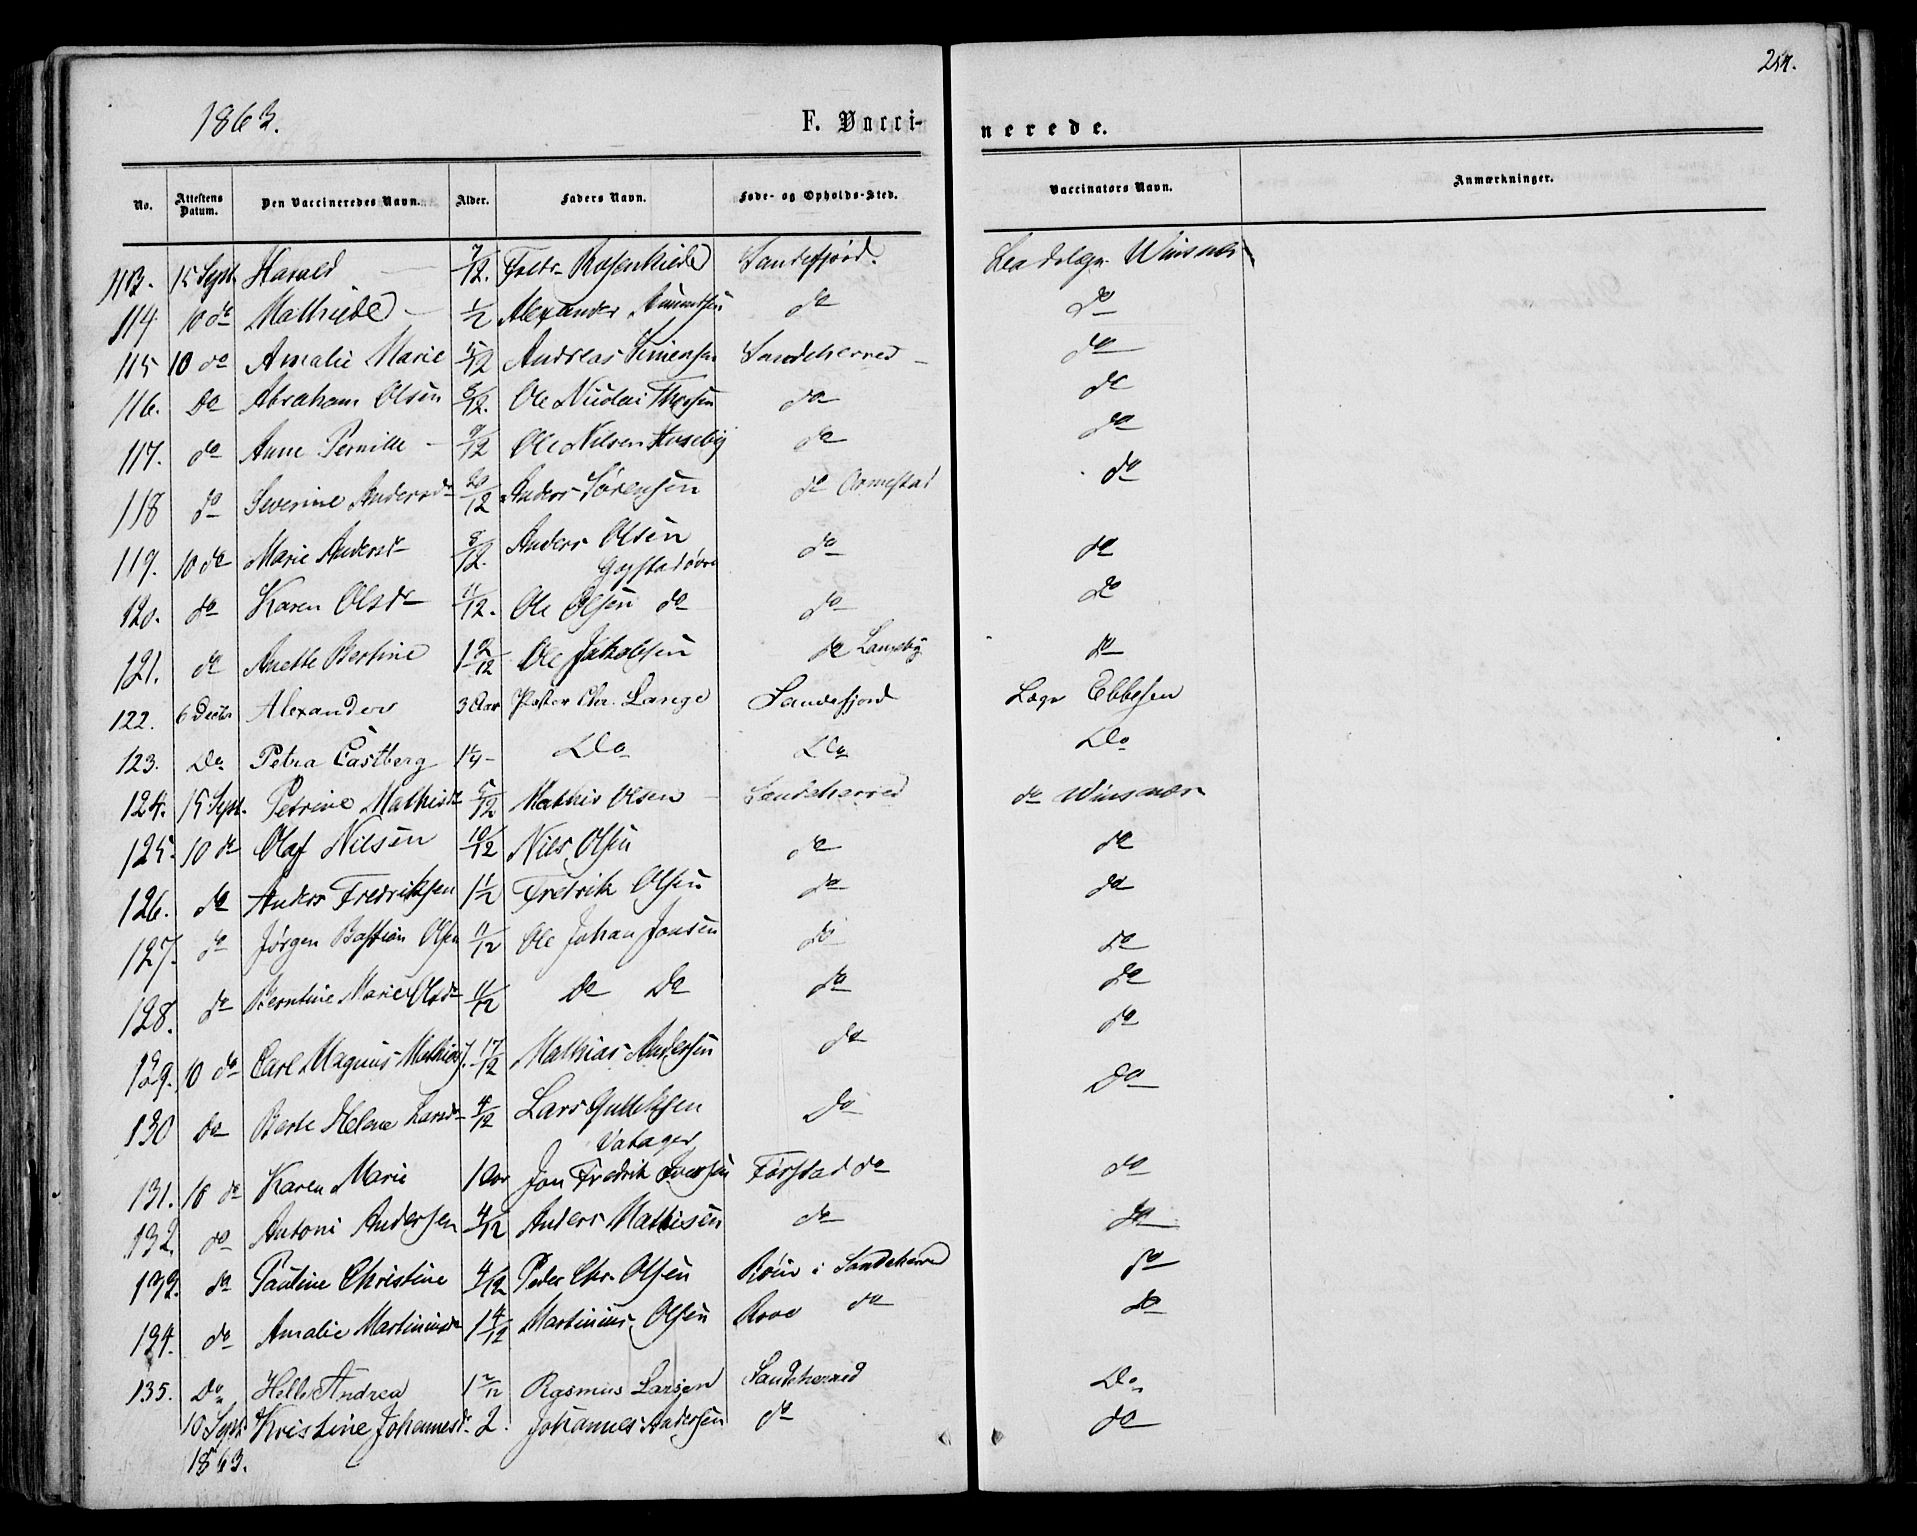 254.
1863.
F. Vacci- nerede.
No. Attestens Datum. Den Vaccineredes Navn. Alder. Faders Navn. Føde- og Opholds-Sted. Vaccinators Navn. Anmærkninger.
113. 15 Sept Harald 7/12. Fredr Rosenkilde Sandefjord. Winsnes
114. 10 do Mathilde 1/2 Alexander do do
115 10 do Amalie Marie 15/12 Andreas Simensen Sandeherred do
116. Do Abraham Olsen 8/12. Ole Nicolai Thorsen do do
117. do Anne Pernille 9/12 Ole Nilsen Huseby do do
118 do Severine Andersdr 20/12 Anders Sørensen do do
119. 10 do Marie Andersdr 8/12. Anders Olsen do do
Gogstad øvre
120. do Karen Olsdr 11/12. Ole Olsen do do do
121. do Anette Bertine 1 2/12 Ole Jakobsen do do
122. 6 Decbr Alexander 3 Aar Pastor Chr. Lange Sandefjord Læge Ebbesen
123. Do Petra Castberg 1 1/4 - Do Do Do
124. 15 Sept. Petrine Mathisdr 5/12 Mathis Olsen Sandeherred do Winsnes
125. 10 do Olaf Nilsen 10/12 Nils Olsen do do
126. do Anders Fredriksen 1 1/2 Fredrik Olsen do do
127. do Jørgen Bastian Olsen 11/12 Ole Johan Jonsen do do
128. do Berntine Marie Olsdr 11/12 do do do do
129. 10 do Carl Magnus Mathias. 17/12 Mathias Andersen do do
130 do Berte Helene Larsdr 4/12 Lars Gulliksen do do
131. 10 do Karen Marie 1 Aar Jon Fredrik Iversen do do
132. do Antoni Andersen 4/12 Anders Mathisen do do
133. do Pauline Christine 4/12 Peder Chr. Olsen i Sandeherred do
134. do Amalie Martiniusdr 1 4/12 Martinius Olsen Rove do do
135. Do Helle Andrea 1 2/12 Rasmus Larsen Sandeherred Do
10 Sept. Kristine Johannesdr 2. Johannes Andersen do do
1863.